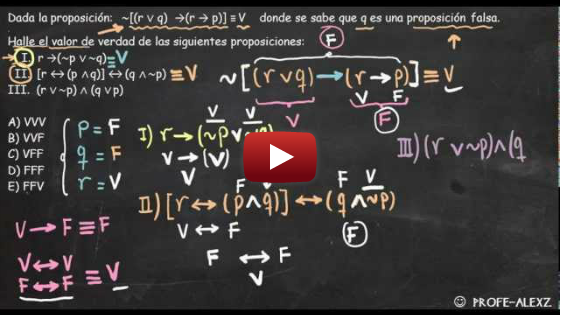 Dada la proposición: ~[(r ∨ q) →(r → p)] ≡ V donde se sabe que q es una proposición falsa.
Halle el valor de verdad de las siguientes proposiciones:
I. r →(~p ∨ ~q)≡V
II) [r ↔ (p ∧q)] ↔ (q ∧ ~p) ≡V
III. (r ∨ ~p) ∧ (q ∨ p)
F
~[(r ∨ q) → (r → p)] ≡ V
V F
V
F
A) VVV
B) VVF
C) VFF
D) FFF
E) FFV
p = F
q = F
r = V
V V
I) r → (~p ∨ ~q)
V → (V)
V
III) (r ∨ ~p) ∧ (q
F V F V
II) [r ↔ (p ∧ q)] ↔ (q ∧ ~p)
V ↔ F
F
F ↔ F
V
V → F ≡ F
V ↔ V
F ↔ F
≡ V
☺ PROFE-ALEXZ